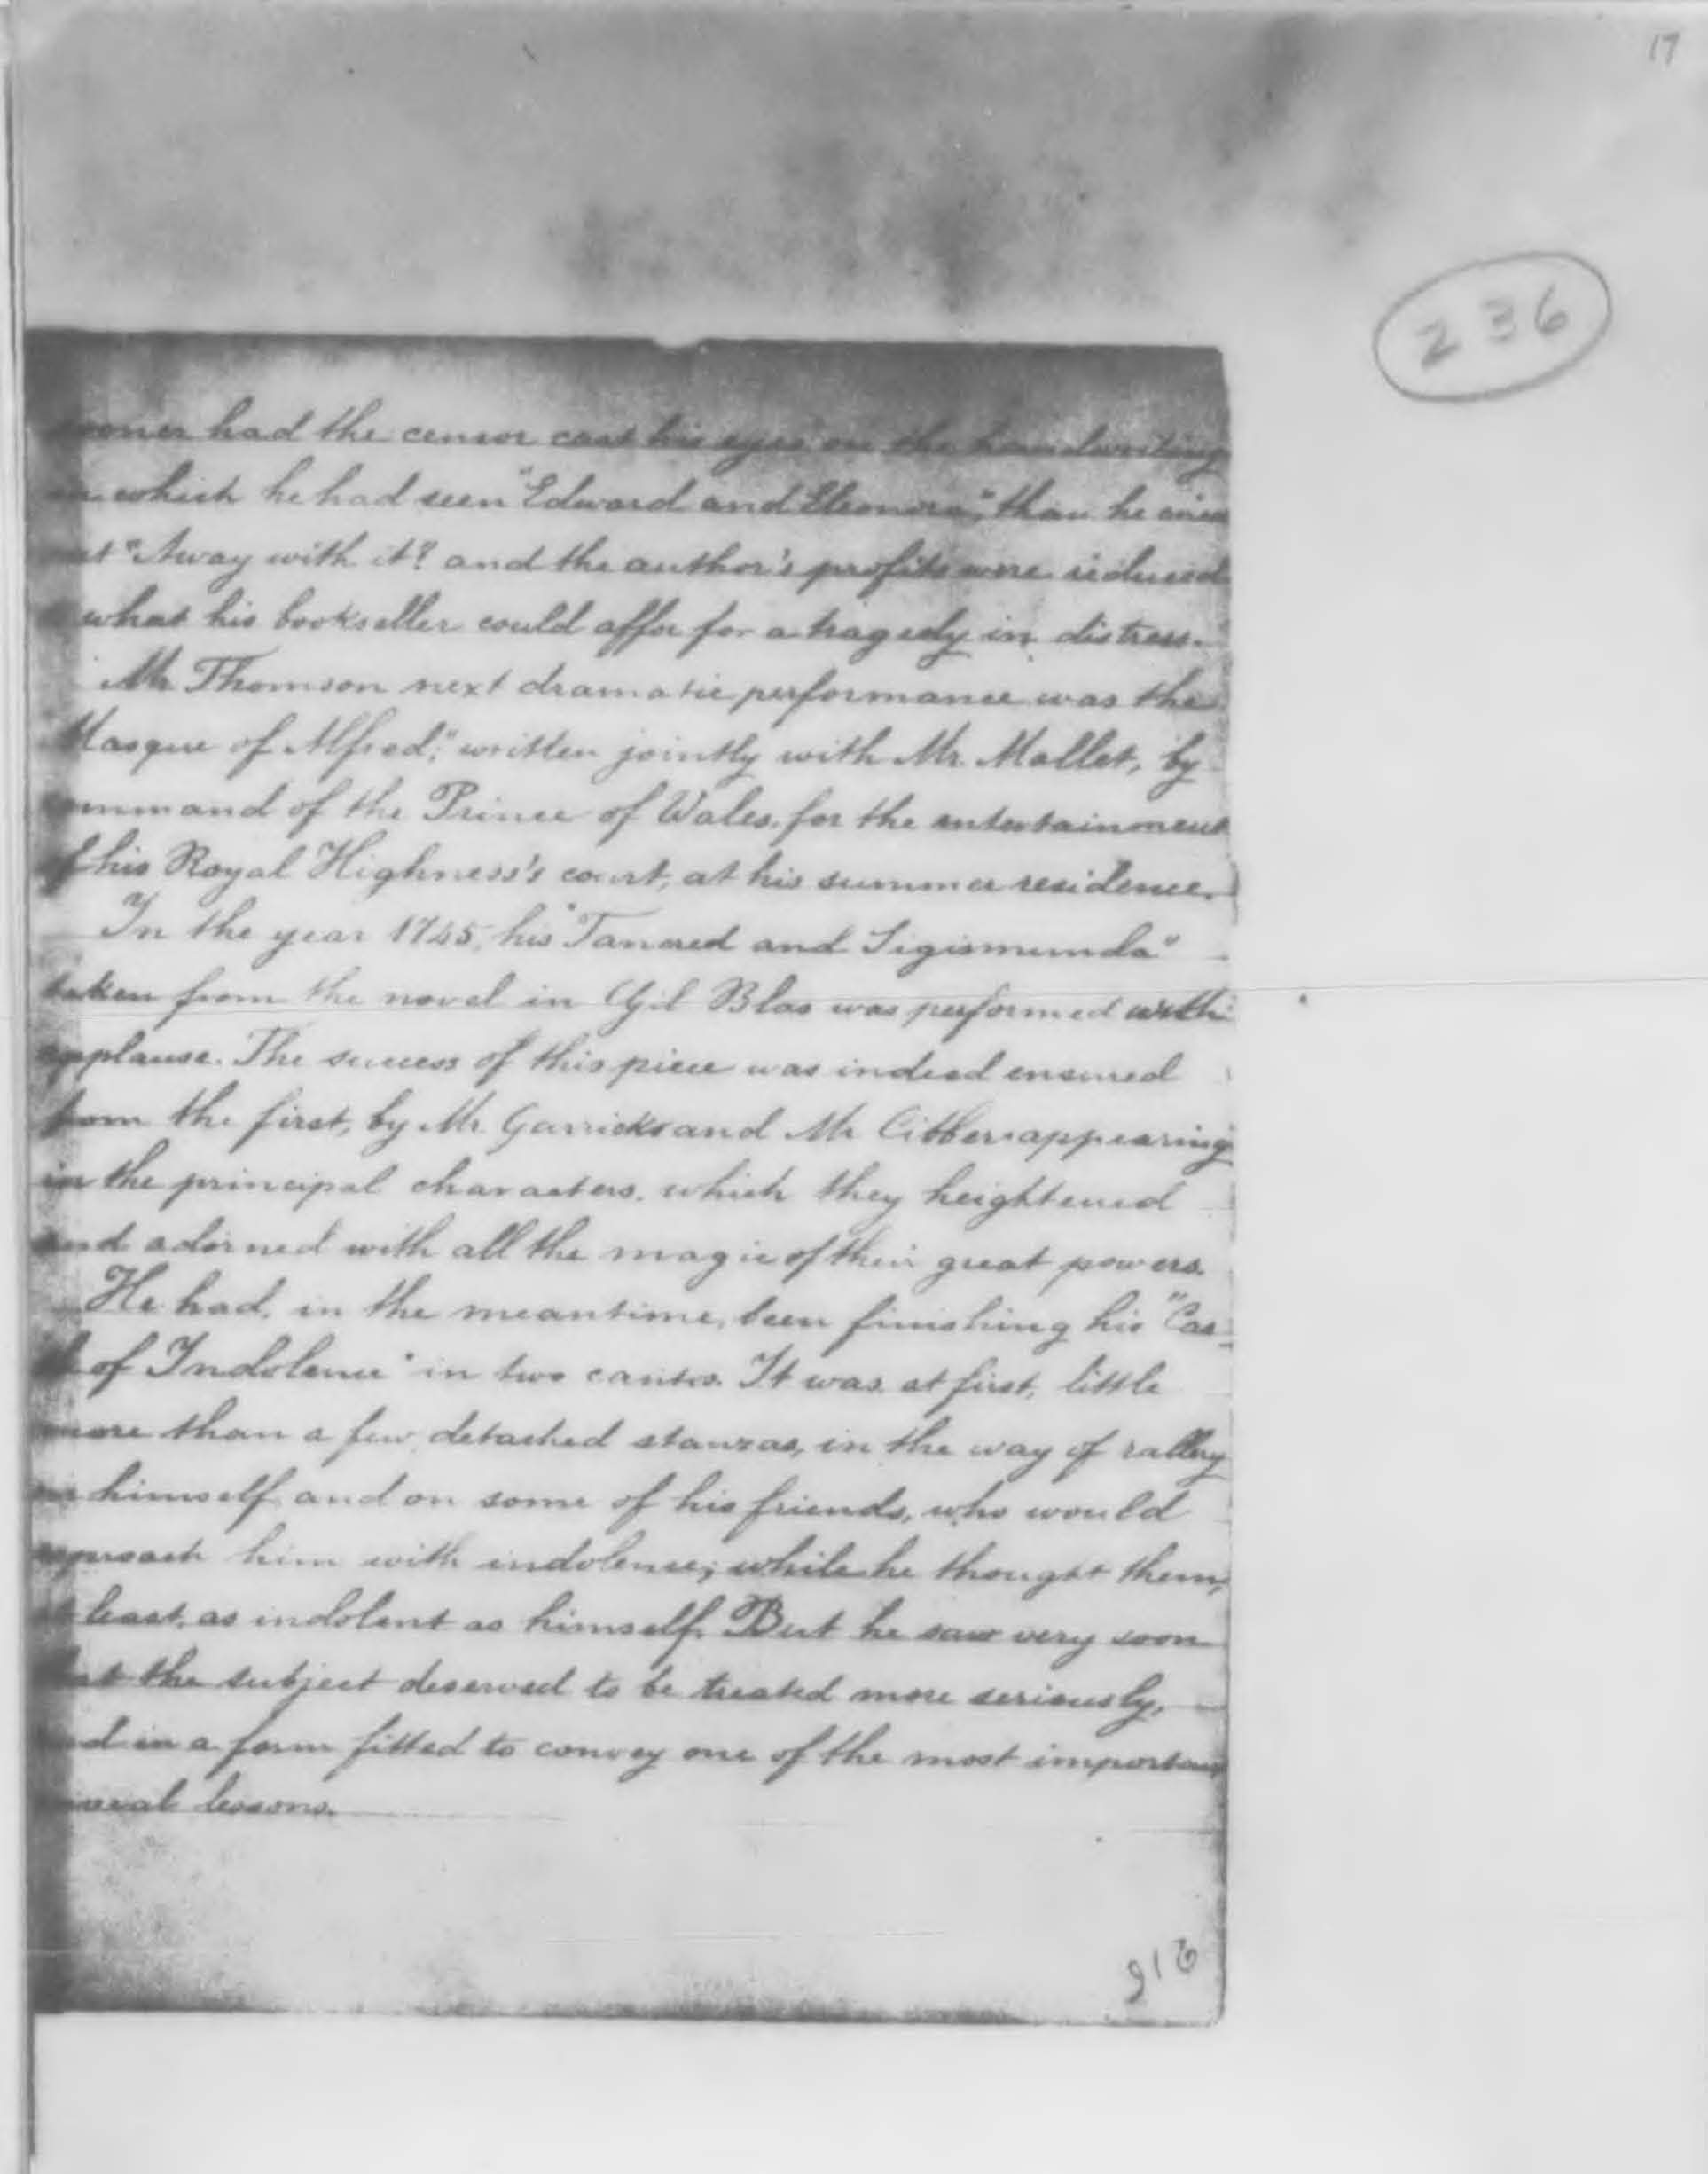 17
236
sooner had the censor cast his eyes on the handwriting
in which he had seen "Edward and Eleonora", than he cried
out "Away with it? and the author's profits were reduced
what his bookseller could affor for a tragedy in distress.
Mr Thomson next dramatic performance was the
Masque of Alfred," written jointly with Mr. Mallet, by
command of the Prince of Wales, for the entertainment
of his Royal Highness's court, at his summer residence.
In the year 1745, his "Tancred and Sigismunda"
taken from the novel in Gil Blas was performed with
applause. The success of this piece was indeed ensured
from the first, by Mr. Garrick and Mr Cibber appearing
in the principal characters, which they heightened
and adorned with all the magic of their great powers.
He had, in the meantime, been finishing his "Cas-
of Indolence" in two cantos. It was, at first, little
more than a few detached stanzas, in the way of rallery
on himself, and on some of his friends, who would
reproach him with indolence; while he thought them,
at least, as indolent as himself. But he saw very soon
that the subject deserved to be treated more seriously,
and in a form fitted to convey one of the most important
moral lessons.
216